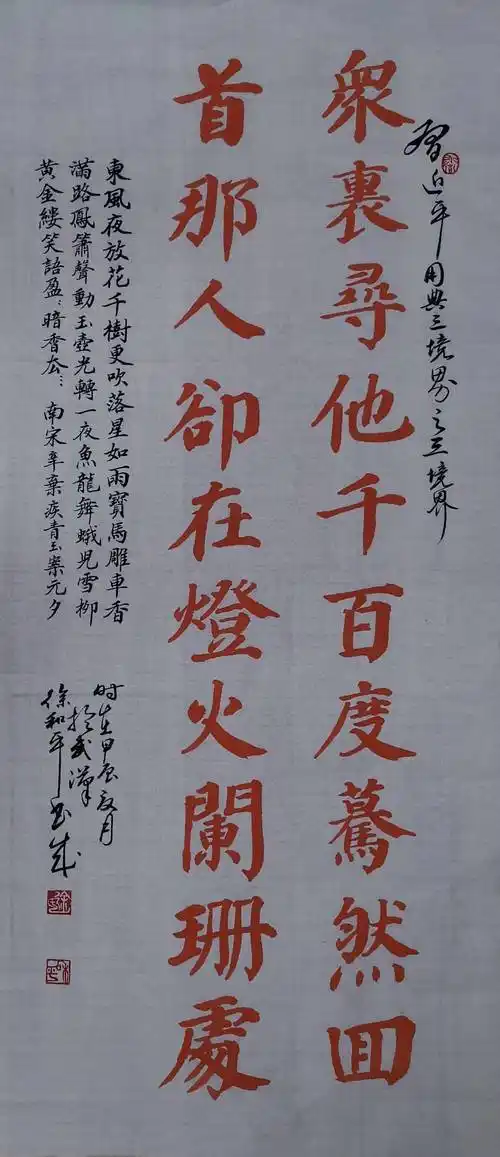 習近平用典三境界之三境界
衆裏尋他千百度驀然囬
首那人卻在燈火闌珊處
東風夜放花千樹更吹落星如雨寶馬雕車香
滿路鳳簫聲動玉壺光轉一夜魚龍舞蛾兒雪柳
黃金縷笑語盈:暗香厺: 南宋辛棄疾青玉案元夕
时在甲辰夏月
於武漢
徐和平书成